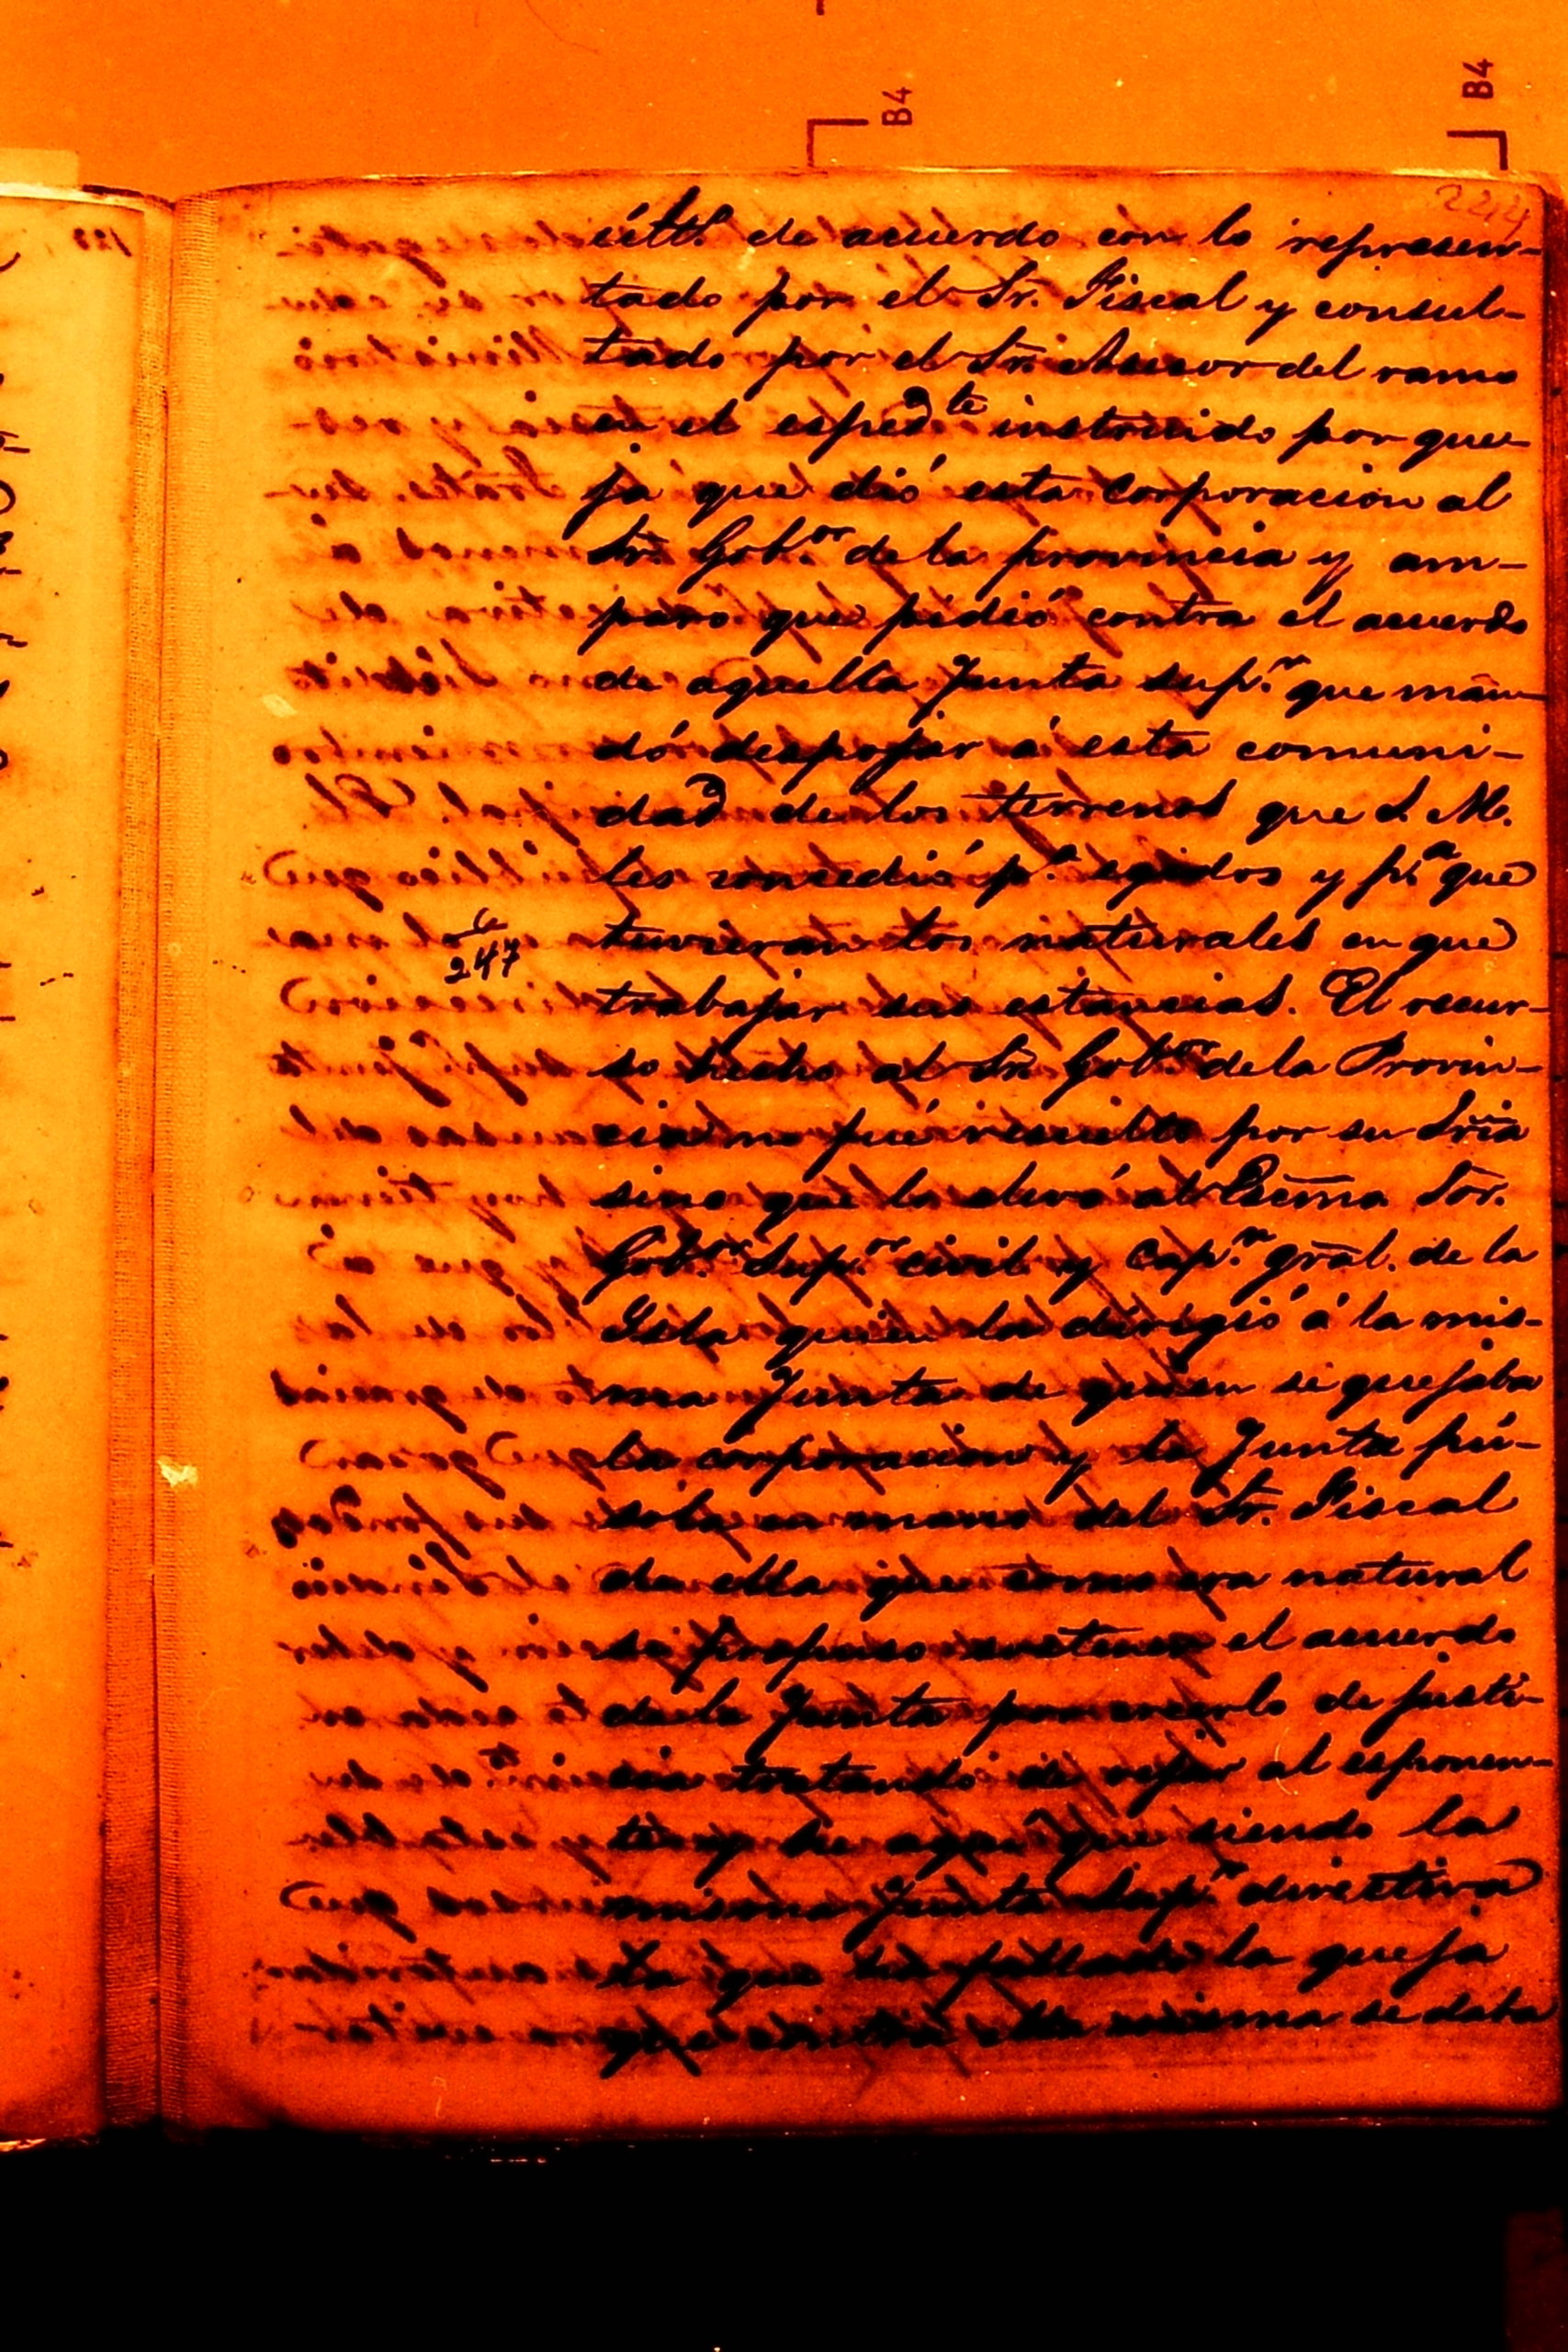 B4
B4
244
últº de acuerdo con lo represen-
tado por el Sr. Fiscal y consul-
tado por el Sr. Asesor del ramo
en el espedte instruido por que-
ja que dió esta corporacion al
Sr. Gobor de la provincia y am-
paro que pidió contra el acuerdo
de aquella Junta supr que man-
dó despojar á esta comuni-
dad de los terrenos que S. M.
les concedió pa egidos y pa que
6
247
tuvieran los naturales en que
trabajar sus estancias. El recur-
so hecho al Sr. Gobor de la Provin-
cia no fué resuelto por su Sria
sino que lo elevó al Escmo Sor.
Gobor Supor civil y Capn gral. de la
Isla quien la dirigió á la mis-
ma Junta de quien se quejaba
la corporacion y la Junta pú-
sola en mano del Sr. Fiscal
de ella que como era natural
se propuso sostener el acuerdo
de la Junta por creerlo de justi-
cia tratando de al esponen-
te y de aquí que siendo la
misma Junta Supr directiva
la que ha fallado la queja
que contra ella misma se daba